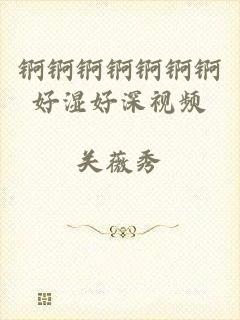 锕锕锕锕锕锕锕
好湿好深视频
关薇秀